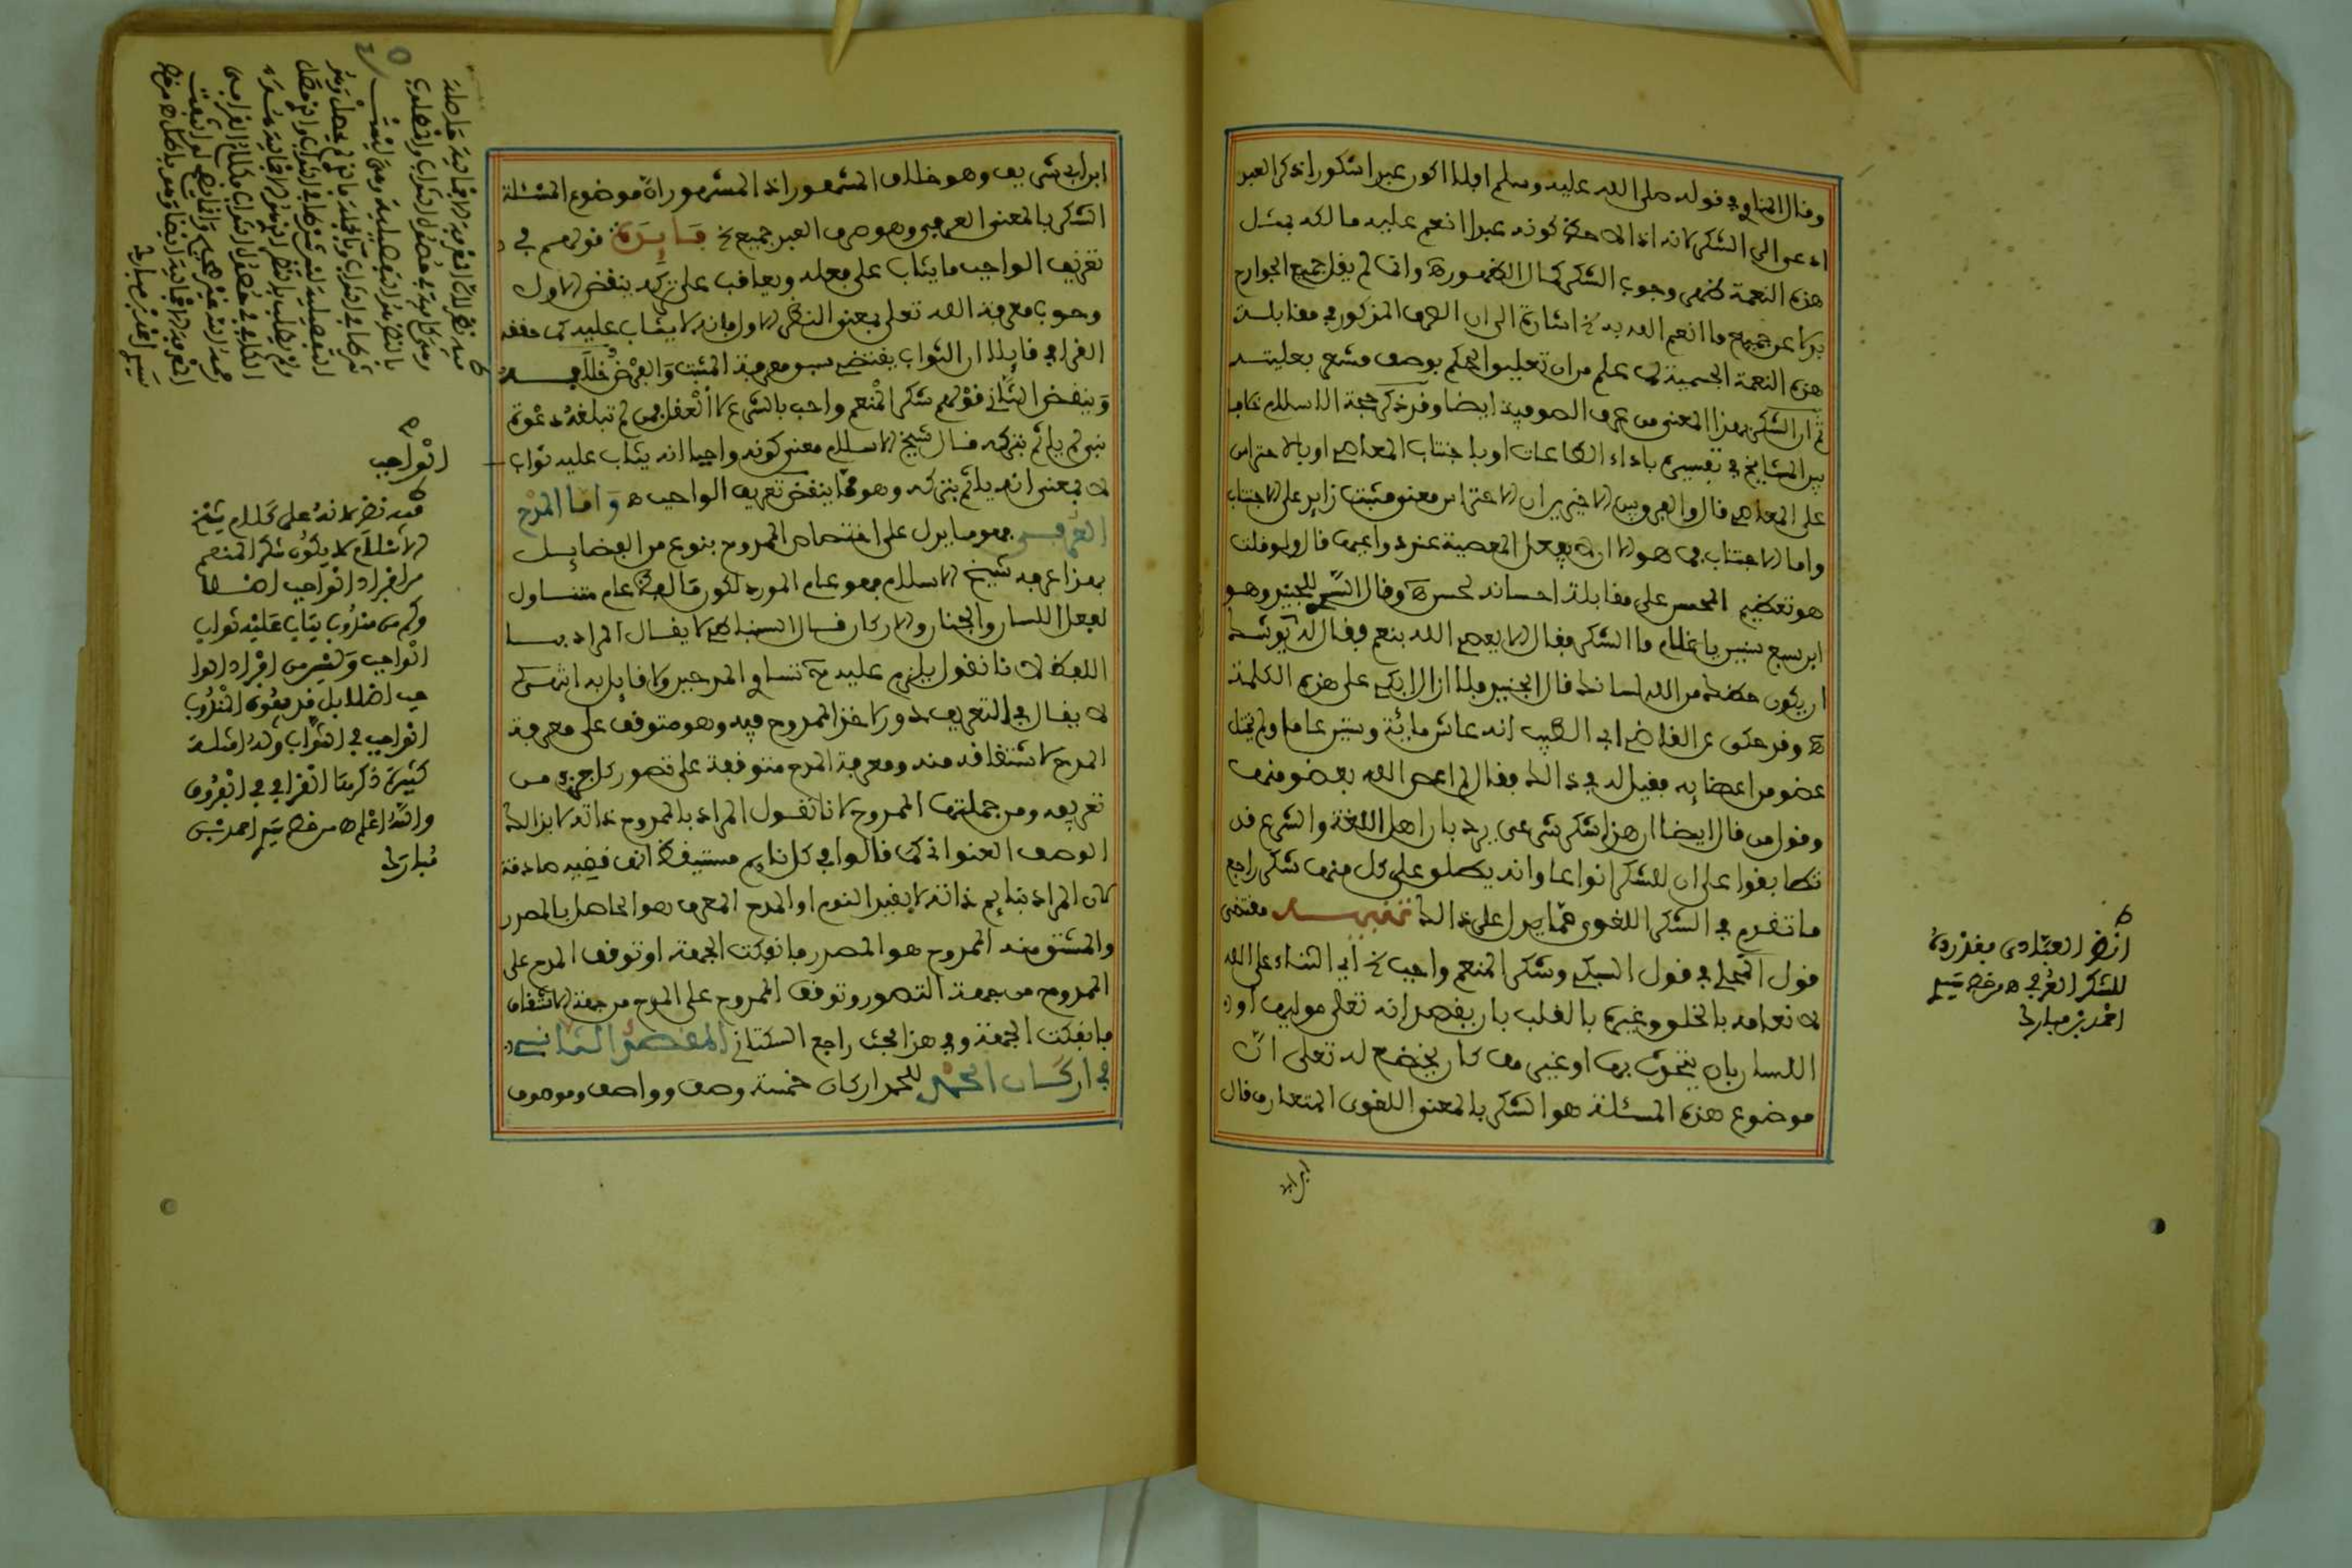 وقال المناوي في قوله صلى الله عليه وسلم افلا اكون عبدا شكورا ذكر العبد
ادعى الى الشكر لانه اذا لاحظ كونه عبدا انعم عليه مالكه بمثل
هذه النعمة ظهر وجوب الشكر كمال الظهور ه وانما لم يقل جميع الجوارح
بدلا عن جميع ما انعم الله به الخ اشارة الى ان الصرف المذكور في مقابلة
هذه النعمة الجسمية لما علم من ان تعليق الحكم بوصف مشعر بعليته
ثم ان الشكر بهذا المعنى من عرف الصوفية ايضا وقد ذكر حجة الاسلام
بين المشايخ في تفسيره باداء الطاعات او باجتناب المعاصي او بالاحتراس
على المعاصي قال والفرق بين الاخيرين ان الاحتراس معنى مثبت زايد على الاجتناب
واما الاجتناب فما هو الا ان لا يفعل المعصية عند دواعيها قال ولو قلت
هو تعظيم المحسن على مقابلة احسانه لحسن ه وقال السري للجنيد وهو
ابن سبع سنين يا غلام ما الشكر فقال الا يعصى الله بنعمه فقال له يوشك
ان يكون حظك من الله لسانك قال الجنيد فلا ازال ابكي على هذه الكلمة
ه وقد حكى عن القاضي ابي الطيب انه عاش مائة وستين عاما ولم يختل
عضو من اعضايه فقيل له في ذالك فقال لم اعص الله بعضو منها
وقول من قال ايضا ان هذا شكر شرعي يرد بان اهل اللغة والشرع قد
تطابقوا على ان للشكر انواعا وانه يطلق على كل منها شكر راجع
ما تقدم في الشكر اللغوي مما يدل على ذالك تنبيه مقتضى
قول المحلي في قول السبكي وشكر المنعم واجب الخ اي الثناء على الله
لانعامه بالخلق وغيره بالقلب بان يقصد انه تعلى موليها او
اللسان بان يتحدث بها او غيره منها كان يخضع له تعلى ان
موضوع هذه المسئلة هو الشكر بالمعنى اللغوي المتعارف قال
ابن ابي
ط
انظر العبادي بعد رده
للشكر العرفي ه من خط سيدي
احمد بن مبارك
ابن ابي شريف وهو خلاف المشهور اذ المشهور ان موضوع المسئلة
الشكر بالمعنى العرفي وهو صرف العبد جميع الخ فايدة قولهم في
تعريف الواجب ما يثاب على فعله ويعاقب على تركه ينقض الاول
وجوب معرفة الله تعلى بمعنى النظر الاول فانه لا يثاب عليه كما حققه
القرافي قايلا ان الثواب يقتضي سبق معرفة المثيب والفرض خلافه
وينقض الثاني قولهم شكر المنعم واجب بالشرع لا العقل فمن لم تبلغه دعوة
نبي لم ياثم بتركه قال شيخ الاسلام معنى كونه واجبا انه يثاب عليه ثواب
لا بمعنى انه ياثم بتركه وهو مما ينقض تعريف الواجب ه واما المدح
العرفي فهو ما يدل على اختصاص الممدوح بنوع من الفضايل
بهذا عرفه شيخ الاسلام فهو عام المورد لكون ما لفظ عام متناول
لفعل اللسان والجنان والاركان قال السنباطي لا يقال المراد بما
اللفظ لانا نقول يلزم عليه ح تساوي المدحين ولا قايل به انتهى
لا يقال في التعريف دور لاخذ الممدوح فيه وهو متوقف على معرفة
المدح لاشتقاقه منه ومعرفة المدح متوقفة على تصور كل جزء من
تعريفه ومن جملتها الممدوح لانا نقول المراد بالممدوح ذاته لا بذالك
الوصف العنواني كما قالوا في كل نايم مستيقظ انها قضية صادقة
لان المراد بنايم ذاته لا بقيد النوم او المدح المعرف هو الحاصل بالمصدر
والمشتق منه الممدوح هو المصدر فانفكت الجهة او توقف المدح على
الممدوح من جهة التصور وتوقف الممدوح على المدح من جهة الاشتقاق
فانفكت الجهة وفي هذا بحث راجع السكتاني المقصد الثاني
في اركان الحمد للحمد اركان خمسة وصف وواصف وموصوف
الواجب
ط
فيه نظر لانه على كلام شيخ
الاسلام لا يكون شكر المنعم
من افراد الواجب اصلا
وكم من مندوب يثاب عليه ثواب
الواجب وليس من افراد الوا
جب اصلا بل قد يفوق المندوب
الواجب في الثواب وله امثلة
كثيرة ذكرها القرافي في الفروق
والله اعلم ه من خط سيدي احمد بن
مبارك